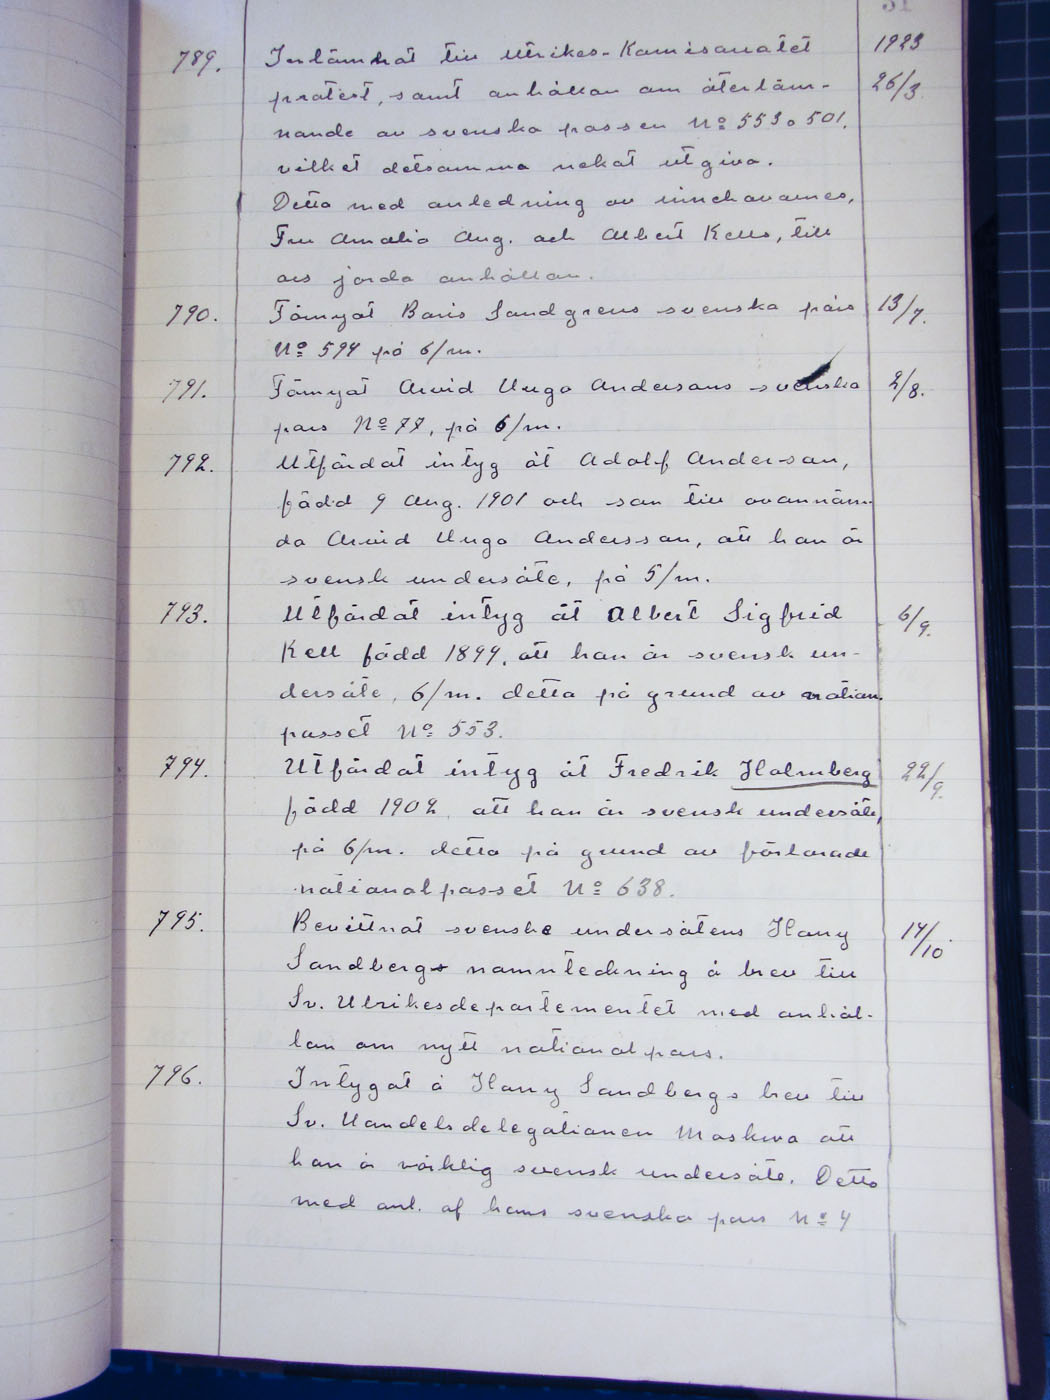 51
789. Inlämnat till Utrikes-Komisariatet 1923
protest, samt anhållan om återläm- 26/3
nande av svenska passen No 553 o 501.
vilket detsamma nekat utgiva.
Detta med anledning av innehavarnes,
Fru Amalia Aug. och Albert Kells, till
oss jorda anhållan.
790. Förnyat Boris Sandgrens svenska pass 13/7.
No 594 på 6/m.
791. Förnyat Arvid Hugo Anderssons svenska 2/8.
pass No 77, på 6/m.
792. Utfärdat intyg åt Adolf Andersson,
född 9 Aug. 1901 och son till ovannämn-
da Arvid Hugo Andersson, att han är
svensk undersåte, på 5/m.
793. Utfärdat intyg åt Albert Sigfrid 6/9.
Kell född 1899, att han är svensk un-
dersåte, 6/m. detta på grund av nation.
passet No 553.
794. Utfärdat intyg åt Fredrik Holmberg 22/9.
född 1902, att han är svensk undersåte,
på 6/m. detta på grund av förlorade
nationalpasset No 638.
795. Bevittnat svenske undersåtens Harry 14/10.
Sandbergs namnteckning å brev till
Sv. Utrikesdepartementet med anhål-
lan om nytt nationalpass.
796. Intygat å Harry Sandbergs brev till
Sv. Handelsdelegationen Moskva att
han är värklig svensk undersåte. Detta
med anl. af hans svenska pass No 4